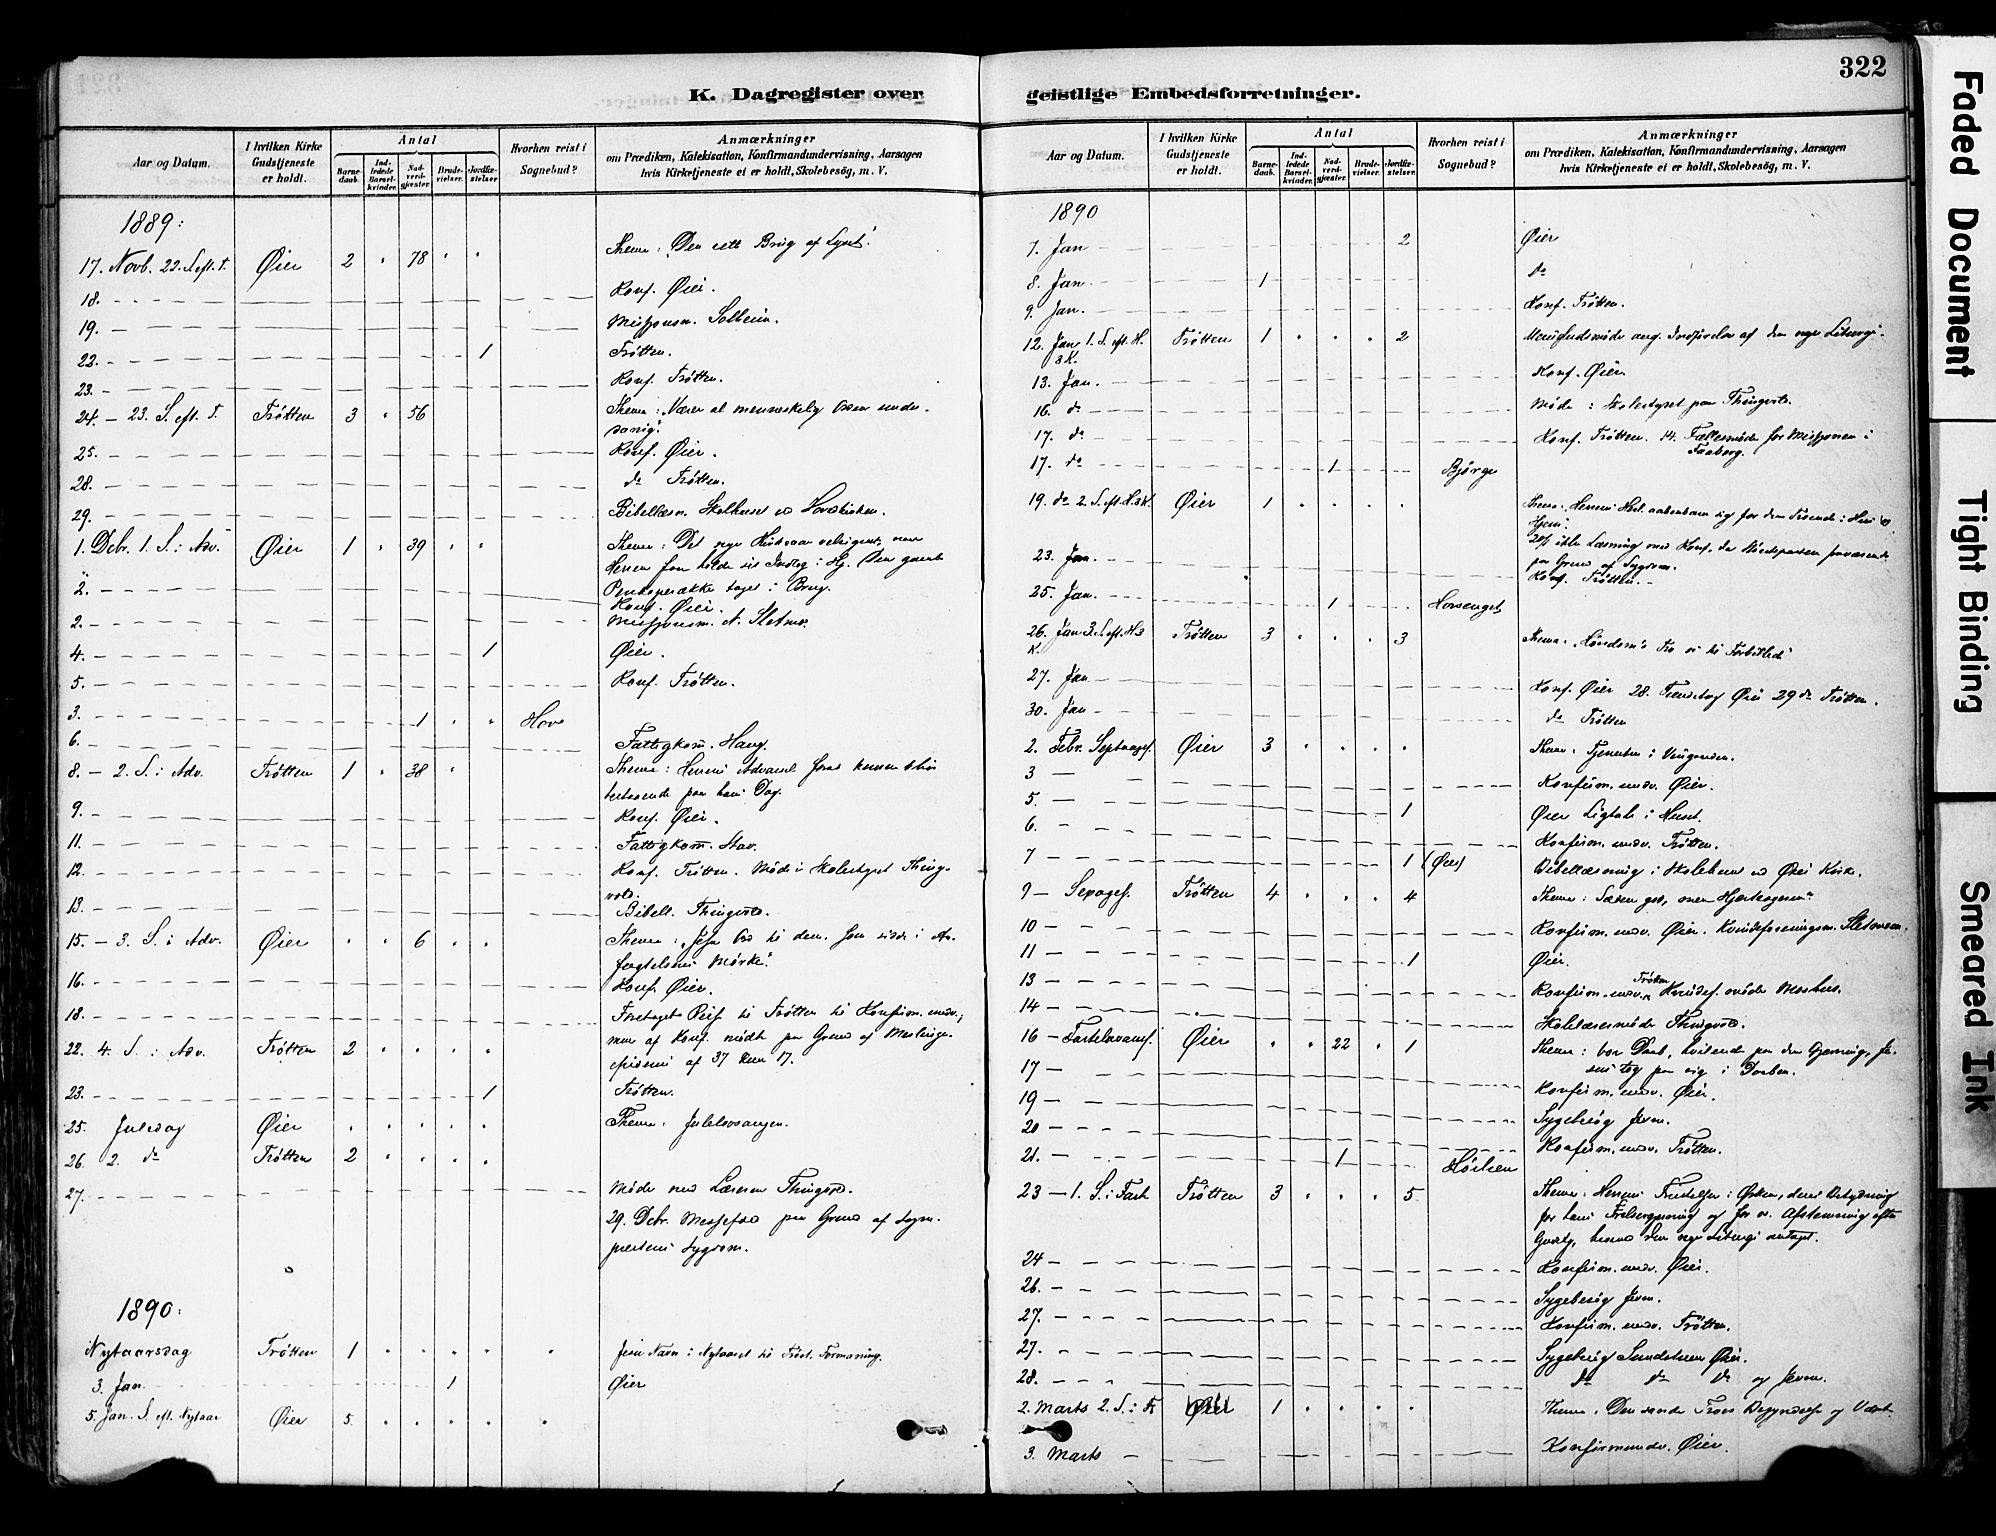 322
K. Dagregister over geistlige Embedsforretninger.
Aar og Datum.
I hvilken Kirke Gudstjeneste er holdt.
Antal
Barne-daab.
Ind-ledede Barsel-kvinder.
Nad-verd-gjæster.
Brude-vielser.
Jordfæ-stelser
Hvorhen reist i Sognebud?
Anmærkninger
om Prædiken, Katekisation, Konfirmandundervisning, Aarsagen
hvis Kirketjeneste ei er holdt, Skolebesøg, m. V.
1889:
17. Novb. 22. S. eft. T. Øier 2 " 78 " " Thema: Den rette Brug af
18. Konf. Øier.
19. Solheim.
22. 1 Trötten.
23. Konf. Trötten.
24. – 23. S. eft. T. Trötten 3 " 56 Thema:
25. Konf. Øier.
28. do Trötten.
29. Bibellæsn. Skolhuset
1. Debr. 1. S. i Adv. Øier 1 " 39 " " Thema: Det nye Kirkeaar velsignet, naar
Herren faar holde sit Indtog i Hj. Den gamle
2. taget i Brug.
Konf. Øier.
2.
4. 1 Øier.
5. Konf. Trötten.
3. 1 " " Hov
6. Fattigkom. Haug.
8. – 2. S. i Adv. Trötten 1 " 38 " Thema: Herrens
paa hans Dag.
9. Konf. Øier.
11. Fattigkom. Stav.
12. Konf. Trötten. Møde i Skolestyret Thing-
vold.
13. Bibell. Thingvold.
15. – 3. S. i Adv. Øier " " 6 " " Thema: Jesu Ord til dem, som sidde i An-
fægtelsens Mørke.
16. Konf. Øier.
18. Foretaget Reise til Trötten til Konfirm. undv.;
men af Konf. mødt paa Grund af Meslinge-
22. 4. S. i Adv. Trötten 2 " " " " epidemi af 37 kun 17.
23. 1 Trötten.
25. Juledag Øier " " " " " Thema: Julelovsangen.
26. 2. do Trötten 2 " " " "
27. Møde med Læreren Thingvold.
29. Debr. Messefald paa Grund af Sogne-
prestens Sygdom.
1890:
Nytaarsdag Trötten 1 " " " " " Jesu Navn i Nytaaret til Trøst. Formaning.
3. Jan. 1 Øier
5. Jan. S. eft. Nytaar Øier 5 " " " " "
Aar og Datum.
I hvilken Kirke Gudstjeneste er holdt.
Antal
Barne-daab.
Ind-ledede Barsel-kvinder.
Nad-verd-gjæster.
Brude-vielser.
Jordfæ-stelser.
Hvorhen reist i Sognebud?
Anmærkninger
om Prædiken, Katekisation, Konfirmandundervisning, Aarsagen
hvis Kirketjeneste ei er holdt, Skolebesøg, m. V.
1890
7. Jan 2 Øier
8. Jan 1 do
9. Jan. Konf. Trötten.
12. Jan 1. S. eft. H. 3 K. Trötten 1 " " " 2 Menighedsmøde ang. Indførelse af den nye Liturgi.
13. Jan. Konf. Øier
16. do Møde i Skolestyret paa Thingvold.
17. do Konf. Trötten. 14. Fællesmøde for Missionen i
Faaberg.
17. do 1 Bjørge
19. do 2. S. eft. H. 3 K. Øier 1 " " " " Thema: Herrens Herl. aabenbarer sig for den Troende i
Hjem.
20de ikke Læsning med Konf.
23. Jan. paa Grund af Sygdom.
Konf. Trötten.
25. Jan. 1 Horsenget
26. Jan 3. S. eft. H. 3 K. Trötten 3 " " " 3 Thema:
27. Jan Konf. Øier 28. Øier 29 do Trötten.
30. Jan do Trötten
2. Febr. Septuages. Øier 3 " " " " Thema: Tjenesten i Vingaarden.
3 Konfirm. undv. Øier.
5. 1 Øier Ligtale i Huset.
6. Konfirm. undv. Trötten.
7 1 (Øier) Bibellæsning i Skolehuset ved Øier Kirke.
9 – Sexages. Trötten 4 " " " 4 Thema: Sæden god, men
10 Konfirm. undv. Øier. Kvindeforeningsm.
11 1 Øier.
13 Konfirm. undv. Trötten Kvindef. møde Moshus.
14 Skolelærermøde Thingvold.
16 – Fastelavns. Øier " " 22 " 1 Thema: vor Daab, hvilende paa den Gjerning, Je-
17 sus tog paa sig i Daaben.
19 Konfirm. undv. Øier.
20 Sygebesøg Jevne.
21. 1 Konfirm. undv. Trötten.
23 – 1. S. i Fast Trötten 3 " " " 5 Thema: Herrens Fristelser i Ørken, deres Betydning
for hans Frelsergjerning og for os. Afstemning efter
Gudstj., hvorved den nye Liturgi antaget.
24 Konfirm. undv. Øier.
26. Sygebesøg Jevne.
27. Konfirm. undv. Trötten.
27. Sygebesøg Sundstuen Øier.
28. do do do og Jevne.
2. Marts 2. S. i F. Øier 1 " " " " Thema: Den sande Troes Begyndelse og Vext.
3. Marts Konfirmundv. Øier.
Faded Document
Tight Binding
Smeared Ink